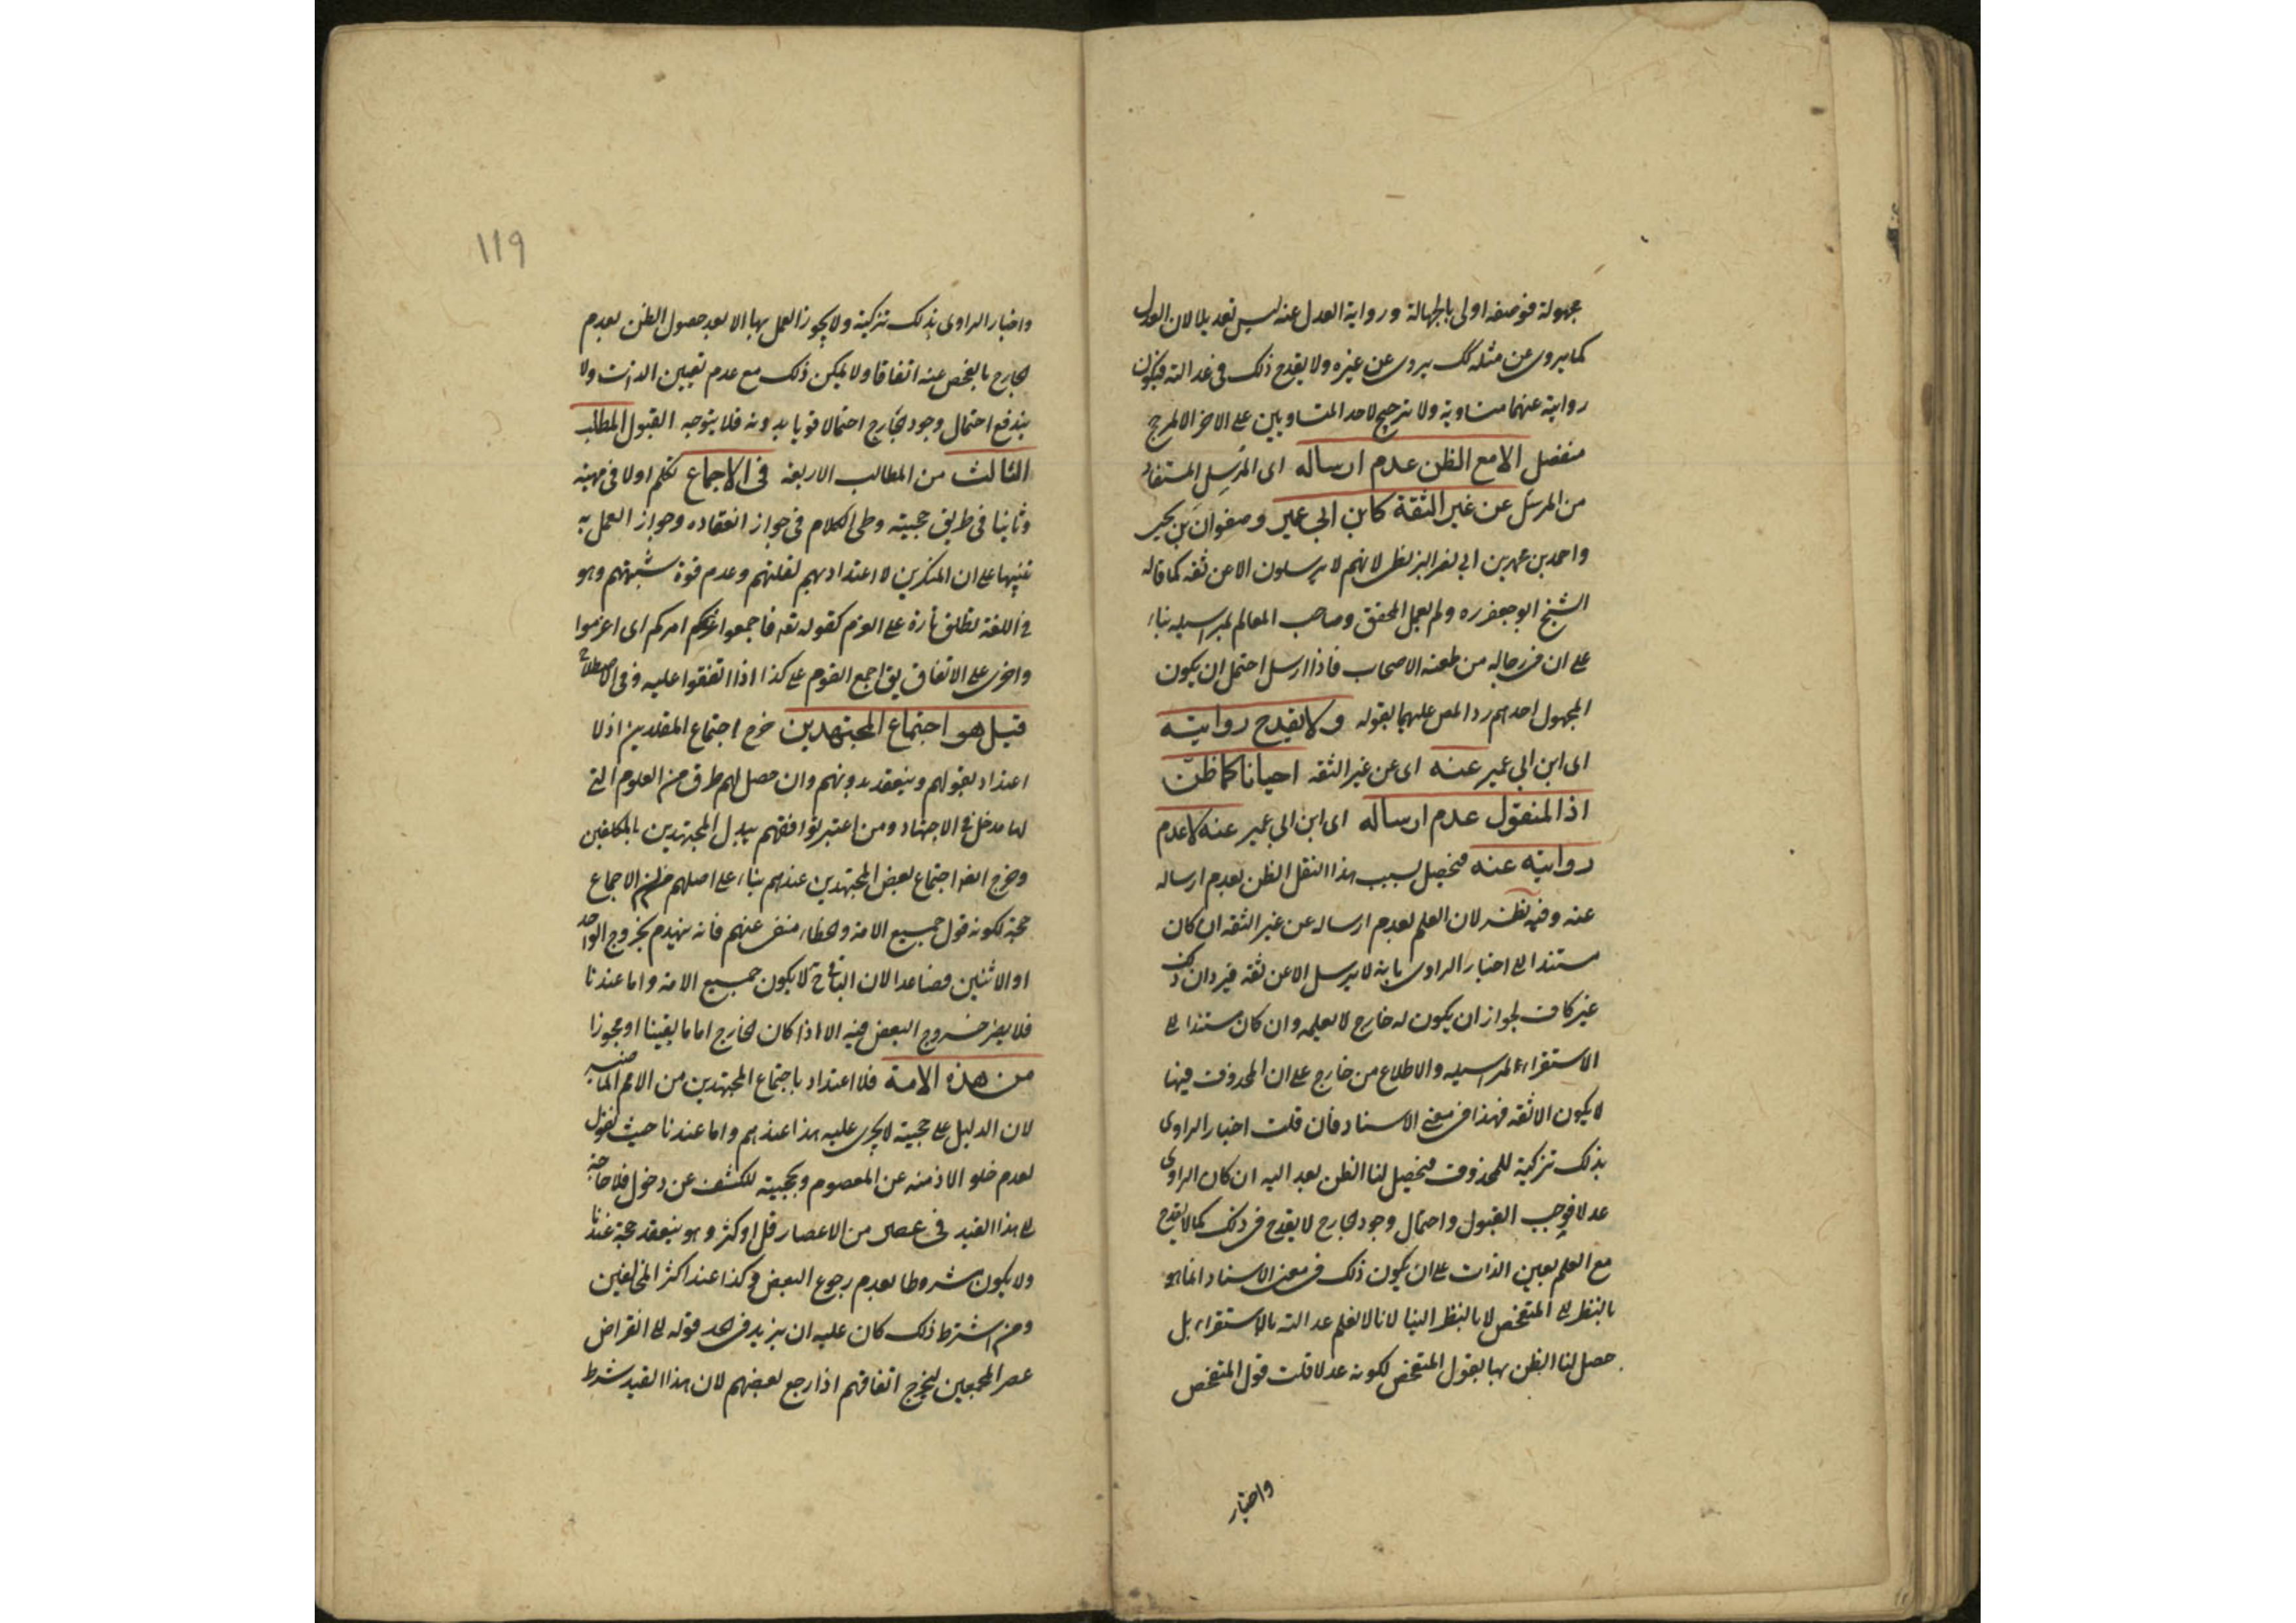 مجهولة فوصفه اولى بالجهالة ورواية العدل عنه ليس تعديلا لان العدل
كما يروى عن مثله كك يروى عن غيره ولا يقدح ذلك فى عدالته فيكون
روايته عنهما متساوية ولا ترجيح لاحد المتساويين على الاخر الا لمرجح
منفصل الا مع الظن عدم ارساله اى المُرسِل المستفاد
من المرسل عن غير الثقة كابن ابى عمير وصفوان بن يحيى
واحمد بن محمد بن ابى نصر البزنطى لانهم لا يرسلون الا عن ثقة كما قاله
الشيخ ابو جعفر ره ولم يعمل المحقق وصاحب المعالم بمراسيله بناء
على ان فى رجاله من طعنه الاصحاب فاذا ارسل احتمل ان يكون
المجهول احدهم رد المص عليهما بقوله ولا يقدح روايته
اى ابن ابى عمير عنه اى عن غير الثقه احيانا كما ظن
اذ المنقول عدم ارساله اى ابن ابى عمير عنه لا عدم
روايته عنه فيحصل بسبب هذا النقل الظن بعدم ارساله
عنه وفيه نظر لان العلم بعدم ارساله عن غير الثقه ان كان
مستندا الى اخبار الراوى بانه لا يرسل الا عن ثقة فيرد ان ذلك
غير كاف لجواز ان يكون له جارح لا يعلمه وان كان مستندا الى
الاستقراء لمراسيله والاطلاع من خارج على ان المحذوف فيها
لا يكون الا ثقه فهذا فى معنى الاسناد فان قلت اخبار الراوى
بذلك تزكية للمحذوف فيحصل لنا الظن بعد اليه ان كان الراوى
عدلا فوجب القبول واحتمال وجود الجارح لا يقدح فى ذلك كما لا يقدح
مع العلم بعين الذات على ان يكون ذلك فى معنى الاسناد انما هو
بالنظر الى المتفحص لا بالنظر الينا لانا لا نعلم عدالته بالاستقراء بل
حصل لنا الظن بها بقول المتفحص لكونه عدلا قلت قول المتفحص
واخبار
119
واخبار الراوى بذلك تزكية ولا يجوز العمل بها الا بعد حصول الظن بعدم
الجارح بالفحص عنه اتفاقا ولا يمكن ذلك مع عدم تعيين الذات ولا
يندفع احتمال وجود الجارح احتمالا قويا بدونه فلا يتوجه القبول المطلب
الثالث من المطالب الاربعة فى الاجماع تكلم اولا فى مهيته
وثانيا فى طريق حجيته وطى الكلام فى جواز انعقاده وجواز العمل به
تنبيها على ان المنكرين لا اعتداد بهم لقلتهم وعدم قوة شبهتهم وهو
فى اللغة تطلق تارة على العزم كقوله تعه فاجمعوا امركم اى اعزموا
واخرى على الاتفاق يق اجمع القوم على كذا اذا اتفقوا عليه وفى الاصطلاح
قيل هو اجتماع المجتهدين خرج اجتماع المقلدين اذ لا
اعتداد بقولهم وينعقد بدونهم وان حصل لهم طرق من العلوم التى
لها مدخل فى الاجتهاد ومن اعتبر توافقهم يبدل المجتهدين بالمكلفين
وخرج ايضا اجتماع بعض المجتهدين عندهم بناء على اصلهم من ان الاجماع
حجة لكونه قول جميع الامة والخطاء منفى عنهم فانه ينهدم بخروج الواحد
او الاثنين فصاعدا لان الباقى ح لا يكون جميع الامة واما عندنا
فلا يضر خروج البعض فيه الا اذا كان الخارج اماما يقينا او مجوزا
من هذه الامة فلا اعتداد باجتماع المجتهدين من الامم الماضيه
لان الدليل على حجيته لا يجرى عليه هذا عندهم واما عندنا حيث نقول
بعدم خلو الازمنه عن المعصوم وبحجيته للكشف عن دخوله فلا حاجة
الى هذا القيد فى عصر من الاعصار قل او كثر وهو ينعقد حجة عندنا
ولا يكون مشروطا بعدم رجوع البعض وكذا عند اكثر المخالفين
ومن اشترط ذلك كان عليه ان يزيد فى الحد قوله الى انقراض
عصر المجمعين ليخرج اتفاقهم اذا رجع بعضهم لان هذا القيد شرط